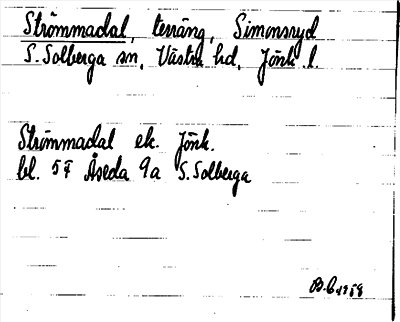 Strömmadal, terräng, Simonsryd
S. Solberga sn, Västra hd, Jönk. l.
Strömmadal ek. Jönk.
bl. 5 F Åseda 9a S. Solberga